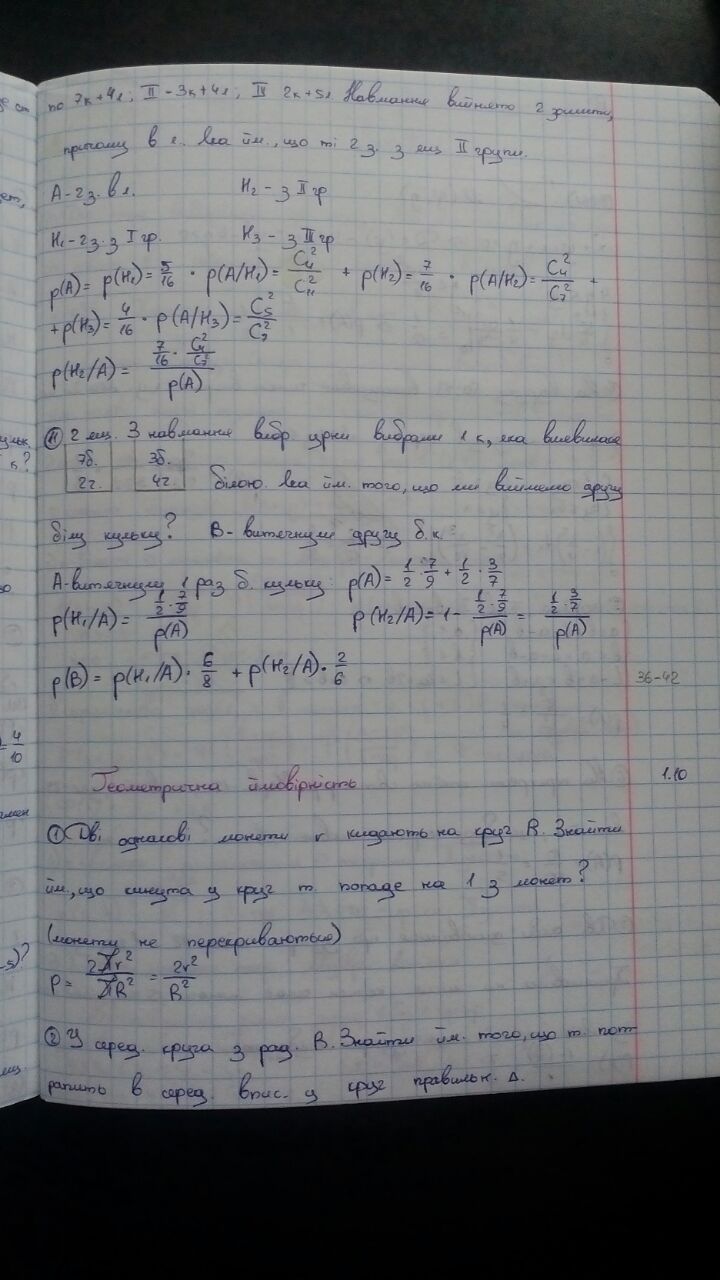 по 7к+4л; II - 3к+4л; III 2к+5л Навмання вийнято 2 зошити,
причому в л. Яка йм., що ті 2 з. з ящ II групи.
A - 2 з. в л.   H₂ - з II гр
H₁ - 2 з. з I гр.   H₃ - з III гр
p(A) = p(H₁) = 5/16 · p(A/H₁) = C₄²/C₁₁² + p(H₂) = 7/16 · p(A/H₂) = C₄²/C₇² +
+ p(H₃) = 4/16 · p(A/H₃) = C₅²/C₇²
p(H₂/A) = (7/16 · C₄²/C₇²)/p(A)
⑪ 2 ящ. З навмання вибр урни вибрали 1 к, яка виявилася
7б. 3б.
2ч. 4ч. білою. Яка йм. того, що ми виймемо другу
білу кульку? B - витягнули другу б.к.
A - витягнули 1 раз б. кульку: p(A) = 1/2 · 7/9 + 1/2 · 3/7
p(H₁/A) = (1/2 · 7/9)/p(A)   p(H₂/A) = 1 - (1/2 · 7/9)/p(A) = (1/2 · 3/7)/p(A)
p(B) = p(H₁/A) · 6/8 + p(H₂/A) · 2/6
36-42
Геометрична ймовірність
1.10
① Дві однакові монети r кидають на круг R. Знайти
йм., що кинута у круг т. попаде на 1 з монет?
(монети не перекриваються)
P = 2πr²/πR² = 2r²/R²
② У серед. круга з рад. R. Знайти йм. того, що т. пот
рапить в серед. впис. у круг правильн. Δ.
4/10